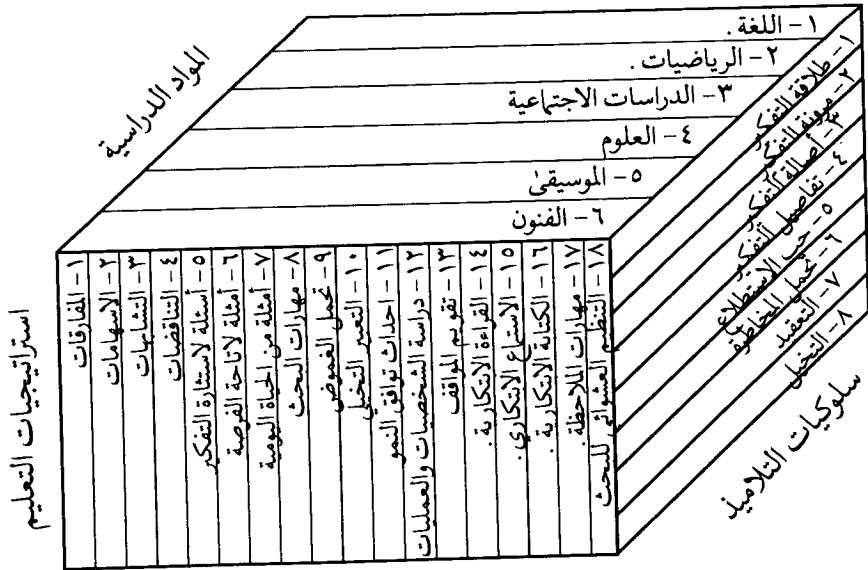 المواد الدراسية
١- اللغة .
٢- الرياضيات .
٣- الدراسات الاجتماعية
٤- العلوم
٥- الموسيقىٰ
٦- الفنون
استراتيجيات التعليم
١- المفارقات
٢- الاسهامات
٣- التشابهات
٤- التناقضات
٥- أسئلة لاستثارة التفكير
٦- أمثلة لاتاحة الفرصة
٧- أمثلة من الحياة اليومية
٨- مهارات البحث
٩- تحمل الغموض
١٠- التعبير التخيلي
١١- احداث توافق النمو
١٢- دراسة الشخصيات والعمليات
١٣- تقويم المواقف
١٤- القراءة الابتكارية .
١٥- الاستماع الابتكاري .
١٦- الكتابة الابتكارية .
١٧- مهارات الملاحظة .
١٨- التنظيم العشوائي للبحث
سلوكيات التلاميذ
١- طلاقة التفكير
٢- مرونة التفكير
٣- أصالة التفكير
٤- تفاصيل التفكير
٥- حب الاستطلاع
٦- تحمل المخاطرة
٧- التعقيد
٨- التخيل